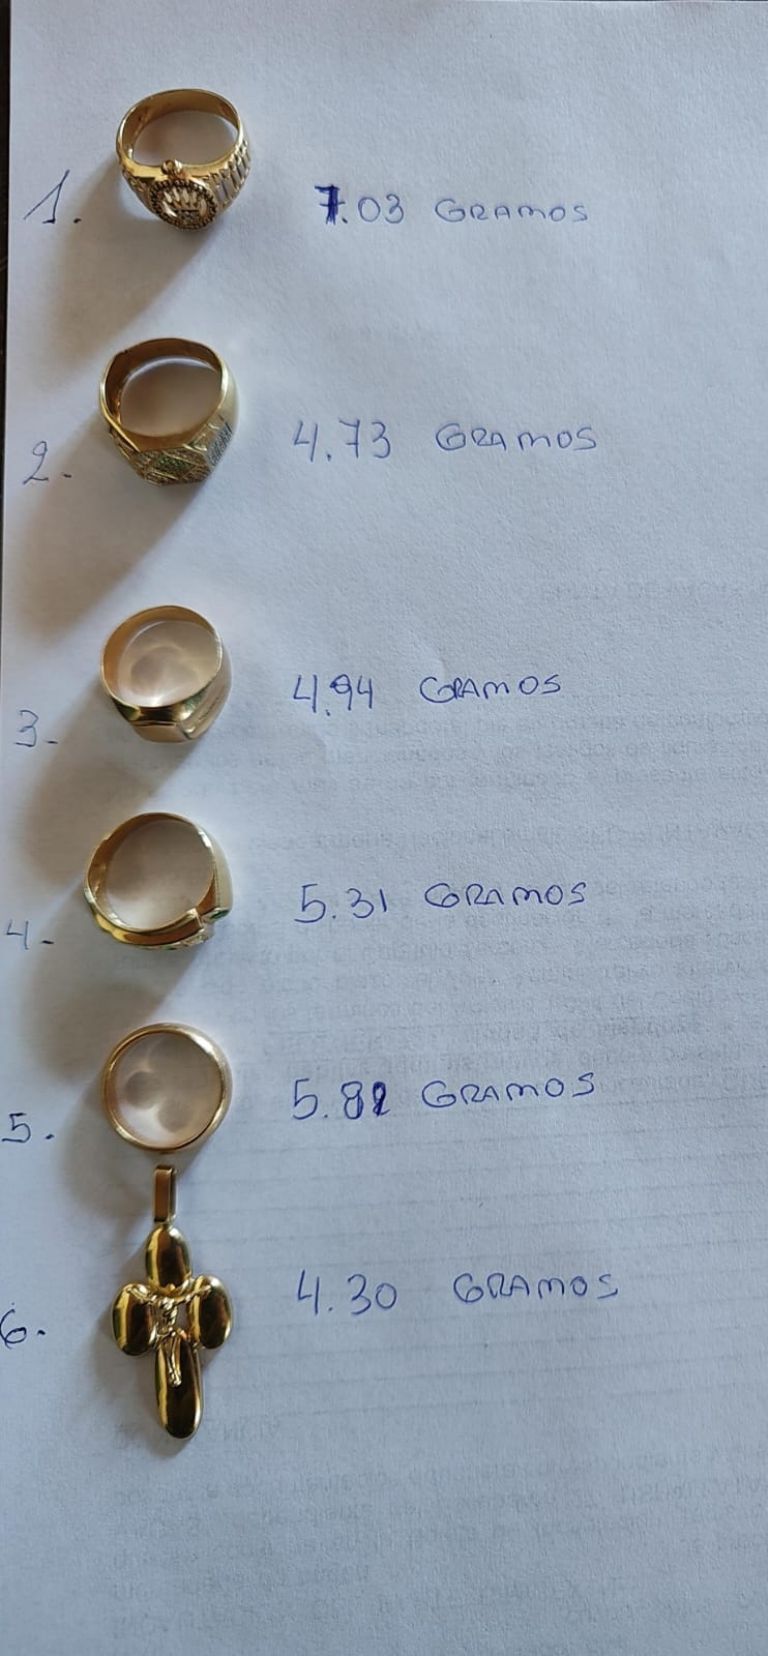 1. 7.03 GRAMOS
2. 4.73 GRAMOS
3. 4.94 GRAMOS
4. 5.31 GRAMOS
5. 5.82 GRAMOS
6. 4.30 GRAMOS